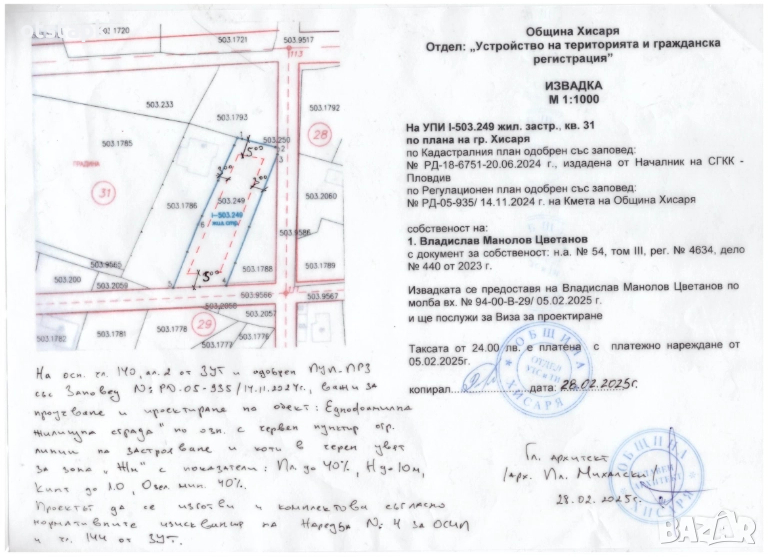 503.1720
503.1721
503.9517
113
503.233
503.1793
503.1792
503.1785
503.250
28
ГРАДИНА
31
1
2
3
5.00
3.00
3.00
503.2060
503.249
503.1786
I-503.249
жил. стр.
6
503.9586
503.9565
503.1788
503.1789
503.200
503.2059
5
5.00
4
503.9566
503.9567
503.2058
503.2057
29
503.1782
503.1781
503.1778
503.1777
503.1776
На осн. чл. 140, ал. 2 от ЗУТ и одобрен ПУП-ПРЗ
със Заповед № РД-05-935/14.11.2024г., важи за
проучване и проектиране на обект: „Еднофамилна
жилищна сграда" по озн. с червен пунктир огр.
линии на застрояване и коти в черен цвят
за зона „Жм" с показатели: Пл. до 40%, H до 10м,
Кинт до 1.0, Озел. мин. 40%.
Проектът да се изготви и комплектова съгласно
нормативните изисквания на Наредба № 4 за ОСИП
и чл. 144 от ЗУТ.
Община Хисаря
Отдел: „Устройство на територията и гражданска
регистрация"
ИЗВАДКА
М 1:1000
На УПИ I-503.249 жил. застр., кв. 31
по плана на гр. Хисаря
по Кадастралния план одобрен със заповед:
№ РД-18-6751-20.06.2024 г., издадена от Началник на СГКК -
Пловдив
по Регулационен план одобрен със заповед:
№ РД-05-935/ 14.11.2024 г. на Кмета на Община Хисаря
собственост на:
1. Владислав Манолов Цветанов
с документ за собственост: н.а. № 54, том III, рег. № 4634, дело
№ 440 от 2023 г.
Извадката се предоставя на Владислав Манолов Цветанов по
молба вх. № 94-00-В-29/ 05.02.2025 г.
и ще послужи за Виза за проектиране
Таксата от 24.00 лв. е платена с платежно нареждане от
05.02.2025г.
копирал
дата: 28.02.2025г.
ОБЩИНА
ХИСАРЯ
Гл. архитект
/арх. Пл. Михалски/
28.02.2025г.
ОБЩИНА
ГЛАВЕН
АРХИТЕКТ
ХИСАРЯ
BAZAR.bg